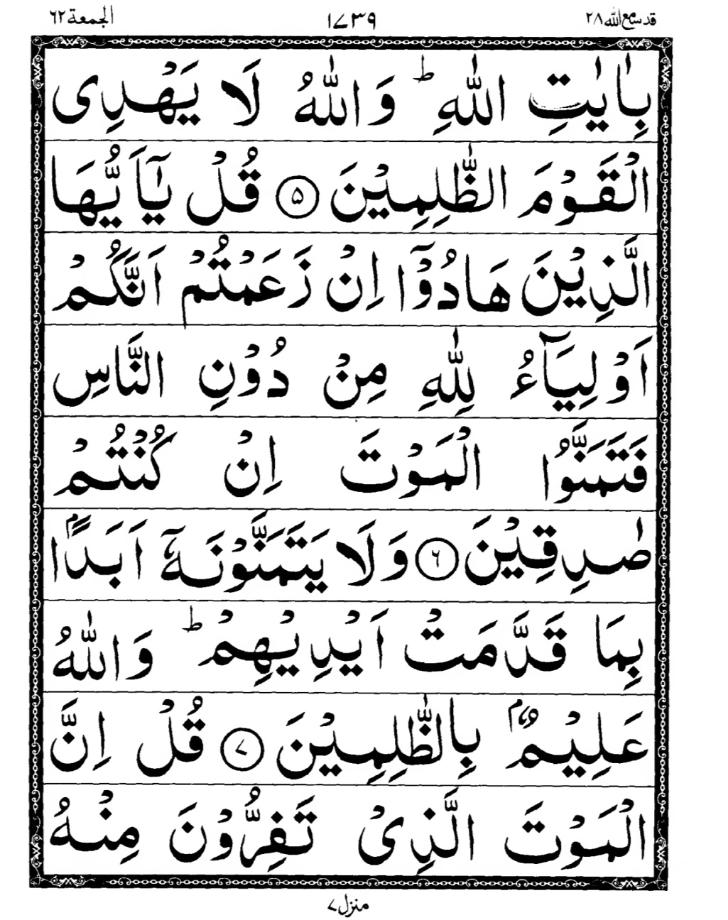 قد سمع الله ٢٨ ١٧٣٩ الجمعة ٦٢
بِاٰيٰتِ اللّٰهِ ؕ وَاللّٰهُ لَا يَهْدِى
الْقَوْمَ الظّٰلِمِيْنَ ۝۵ قُلْ يٰۤاَيُّهَا
الَّذِيْنَ هَادُوْۤا اِنْ زَعَمْتُمْ اَنَّكُمْ
اَوْلِيَآءُ لِلّٰهِ مِنْ دُوْنِ النَّاسِ
فَتَمَنَّوُا الْمَوْتَ اِنْ كُنْتُمْ
صٰدِقِيْنَ ۝۶ وَلَا يَتَمَنَّوْنَهٗۤ اَبَدًۢا
بِمَا قَدَّمَتْ اَيْدِيْهِمْ ؕ وَاللّٰهُ
عَلِيْمٌۢ بِالظّٰلِمِيْنَ ۝۷ قُلْ اِنَّ
الْمَوْتَ الَّذِىْ تَفِرُّوْنَ مِنْهُ
منزل ٧